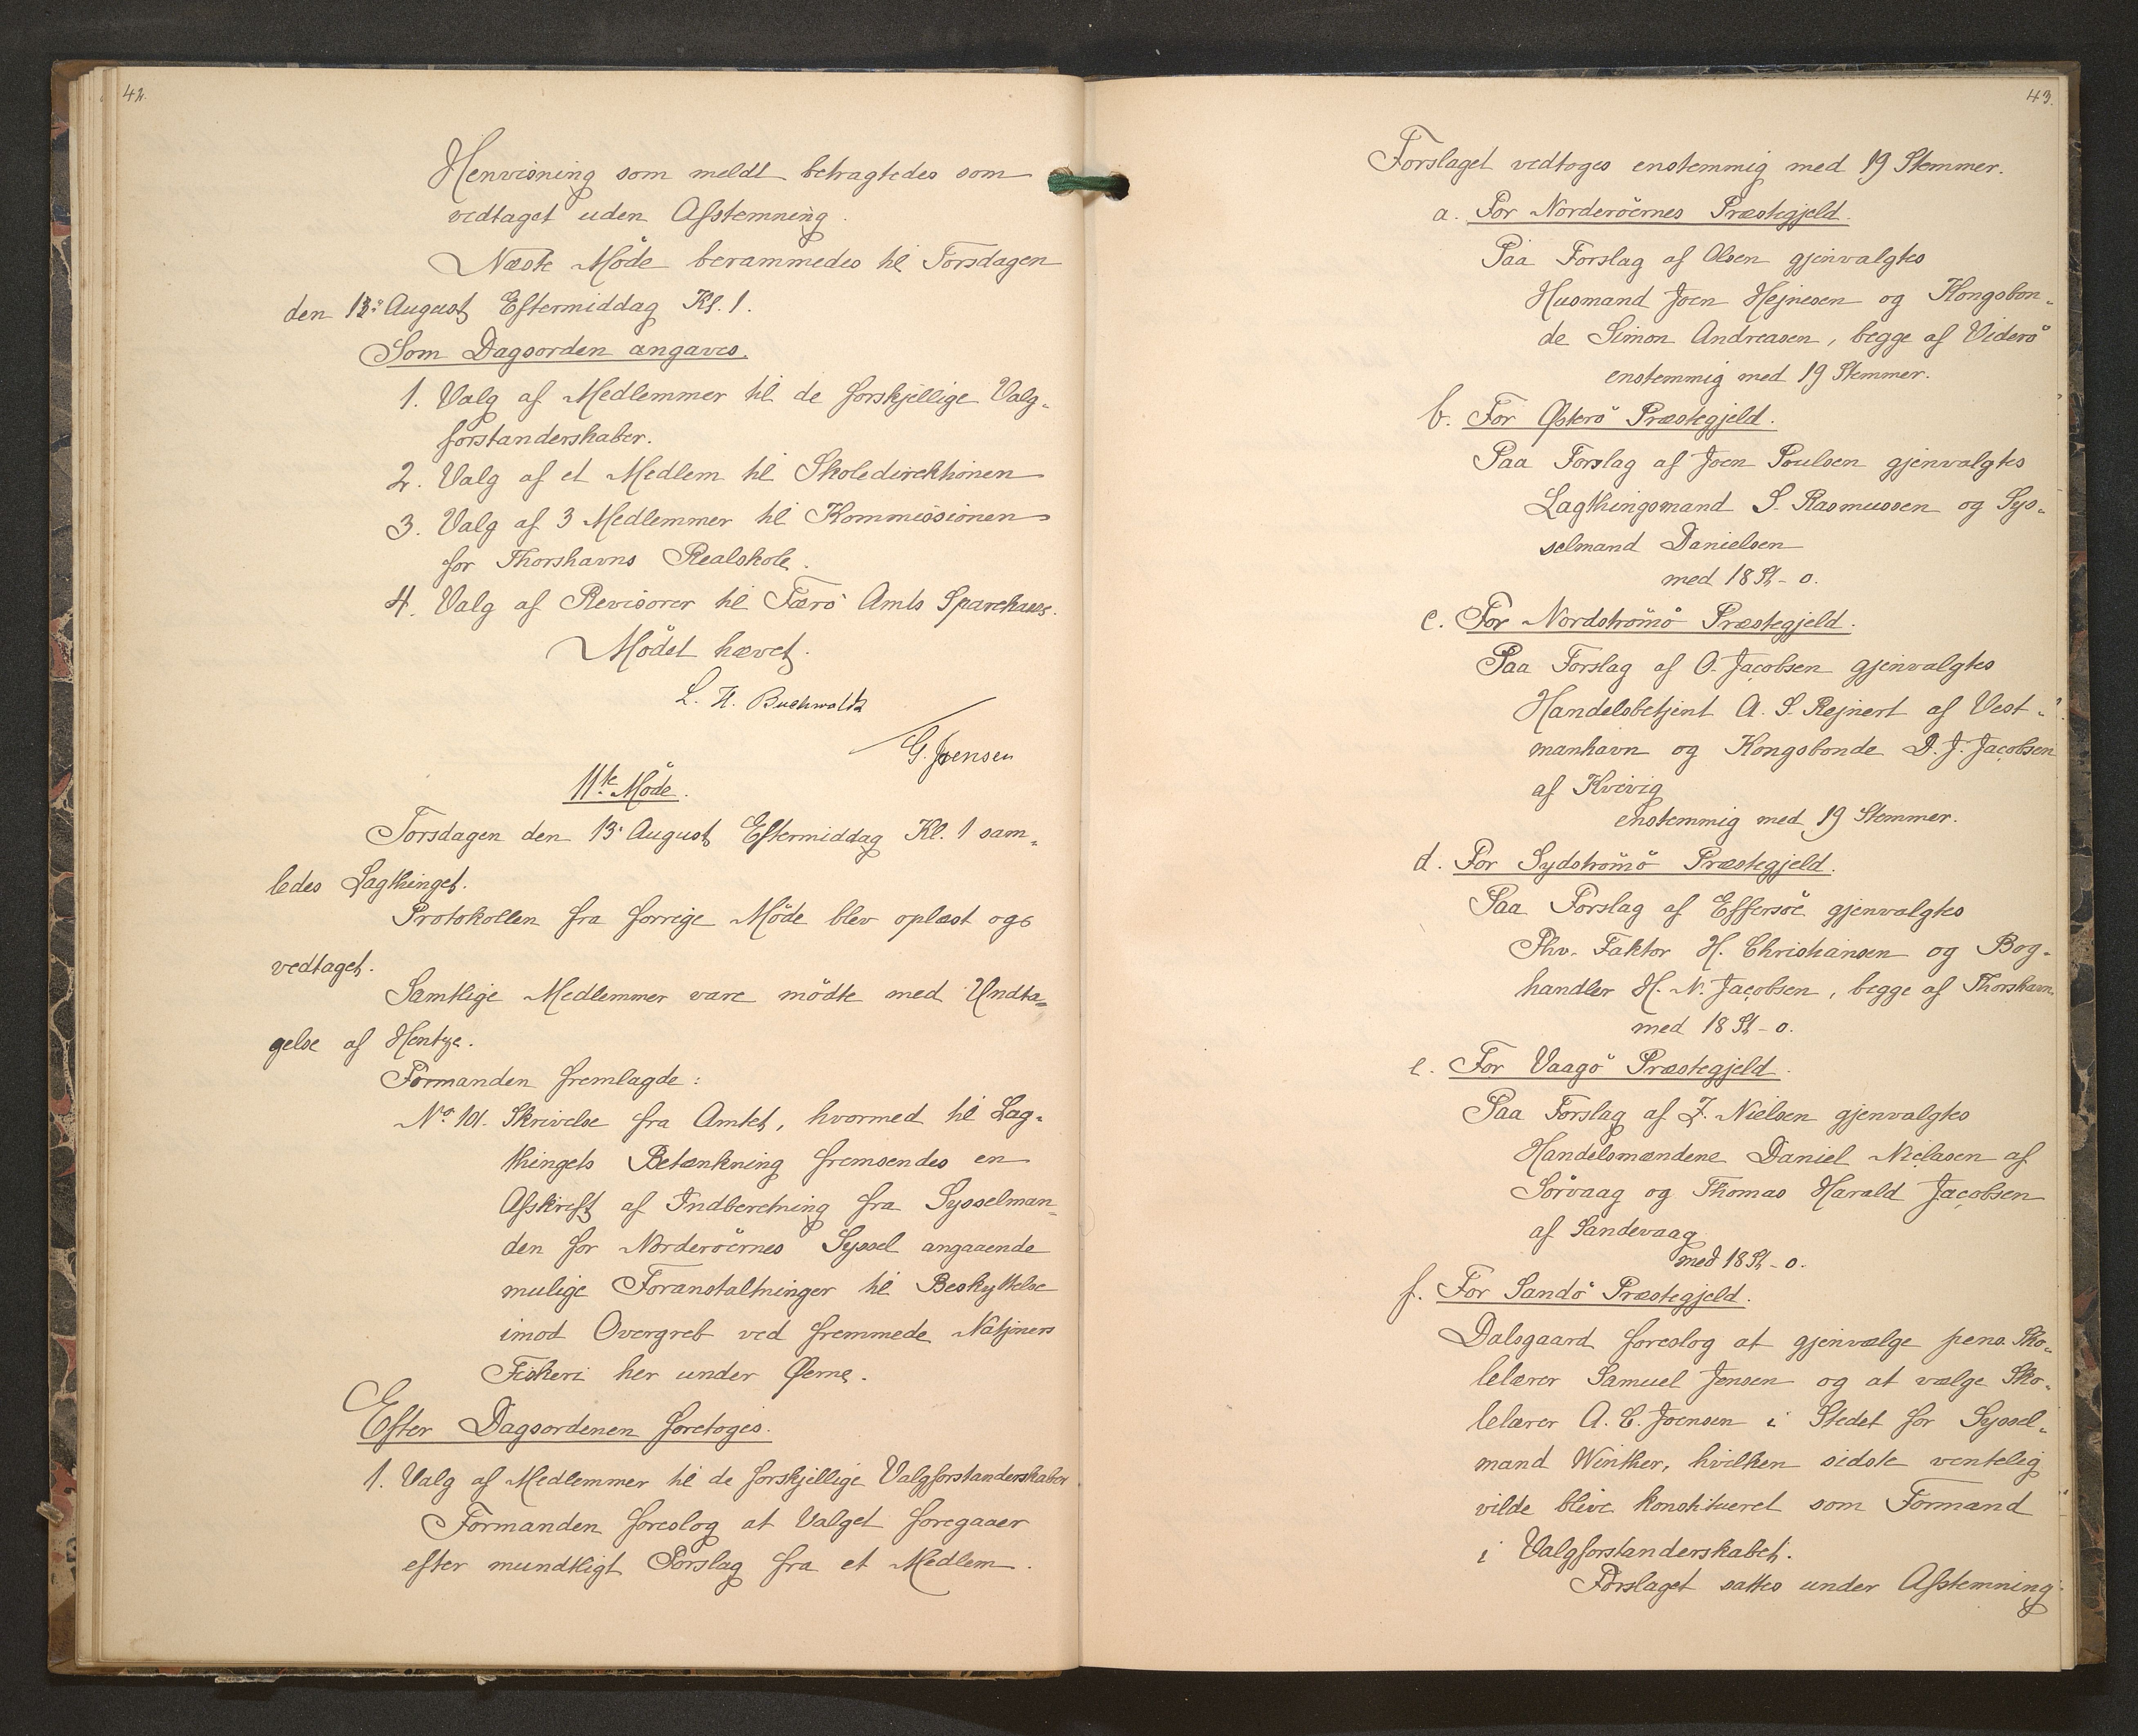 42.
Henvisning som meldt betragtedes som
vedtaget uden Afstemning.
Næste Möde berammedes til Torsdagen
den 13: August Eftermiddag Kl. 1.
Som Dagsorden angaves.
1. Valg af Medlemmer til de forskjellige Valg-
forstanderskaber.
2. Valg af et Medlem til Skoledirektionen
3. Valg af 3 Medlemmer til Kommissionen
for Thorshavns Realskole.
4. Valg af Revisorer til Færö Amts Sparekasse.
Mödet hævet.
L. H. Buchwaldt
G. Joensen
11te Möde.
Torsdagen den 13. August Eftermiddag Kl. 1 sam-
ledes Lagthinget.
Protokollen fra forrige Möde blev oplæst og
vedtaget.
Samtlige Medlemmer vare mödte med Undta-
gelse af Hentze.
Formanden fremlagde:
No. 101. Skrivelse fra Amtet, hvormed til Lag-
thingets Betænkning fremsendes en
Afskrift af Indberetning fra Sysselman-
den for Norderöernes Syssel angaaende
mulige Foranstaltninger til Beskyttelse
imod Overgreb ved fremmede Natjoners
Fiskeri her under Øerne.
Efter Dagsordenen foretoges.
1. Valg af Medlemmer til de forskjellige Valgforstanderskaber
Formanden foreslog at Valget foregaaer
efter mundtligt Forslag fra et Medlem.
43.
Forslaget vedtoges enstemmig med 19 Stemmer.
a. For Norderöernes Præstegjeld.
Paa Forslag af Olsen gjenvalgtes
Husmand Joen Hejnesen og Kongsbon-
de Simon Andreasen, begge af Viderö
enstemmig med 19 Stemmer.
b. For Østerö Præstegjeld.
Paa Forslag af Joen Poulsen gjenvalgtes
Lagthingsmand S. Rasmussen og Sys-
selmand Danielsen
med 18 St - 0.
c. For Nordströmö Præstegjeld.
Paa Forslag af O. Jacobsen gjenvalgtes
Handelsbetjent A. S. Rejnert af Vest-
manhavn og Kongsbonde D. J. Jacobsen
af Kvivig
enstemmig med 19 Stemmer.
d. For Sydströmö Præstegjeld.
Paa Forslag af Effersöe gjenvalgtes
Fhv. Faktor H. Christiansen og Bog-
handler H. N. Jacobsen, begge af Thorshavn
med 18 St - 0.
e. For Vaagö Præstegjeld.
Paa Forslag af J. Nielsen gjenvalgtes
Handelsmændene Daniel Niclasen af
Sörvaag og Thomas Harald Jacobsen
af Sandevaag
med 18 St - 0.
f. For Sandö Præstegjeld.
Dalsgaard foreslog at gjenvælge pens. Sko-
lelærer Samuel Jensen og at vælge Sko-
lelærer A. C. Joensen i Stedet for Syssel-
mand Winther, hvilken sidste ventelig
vilde blive konstitueret som Formand
i Valgforstanderskabet.
Forslaget sattes under Afstemning